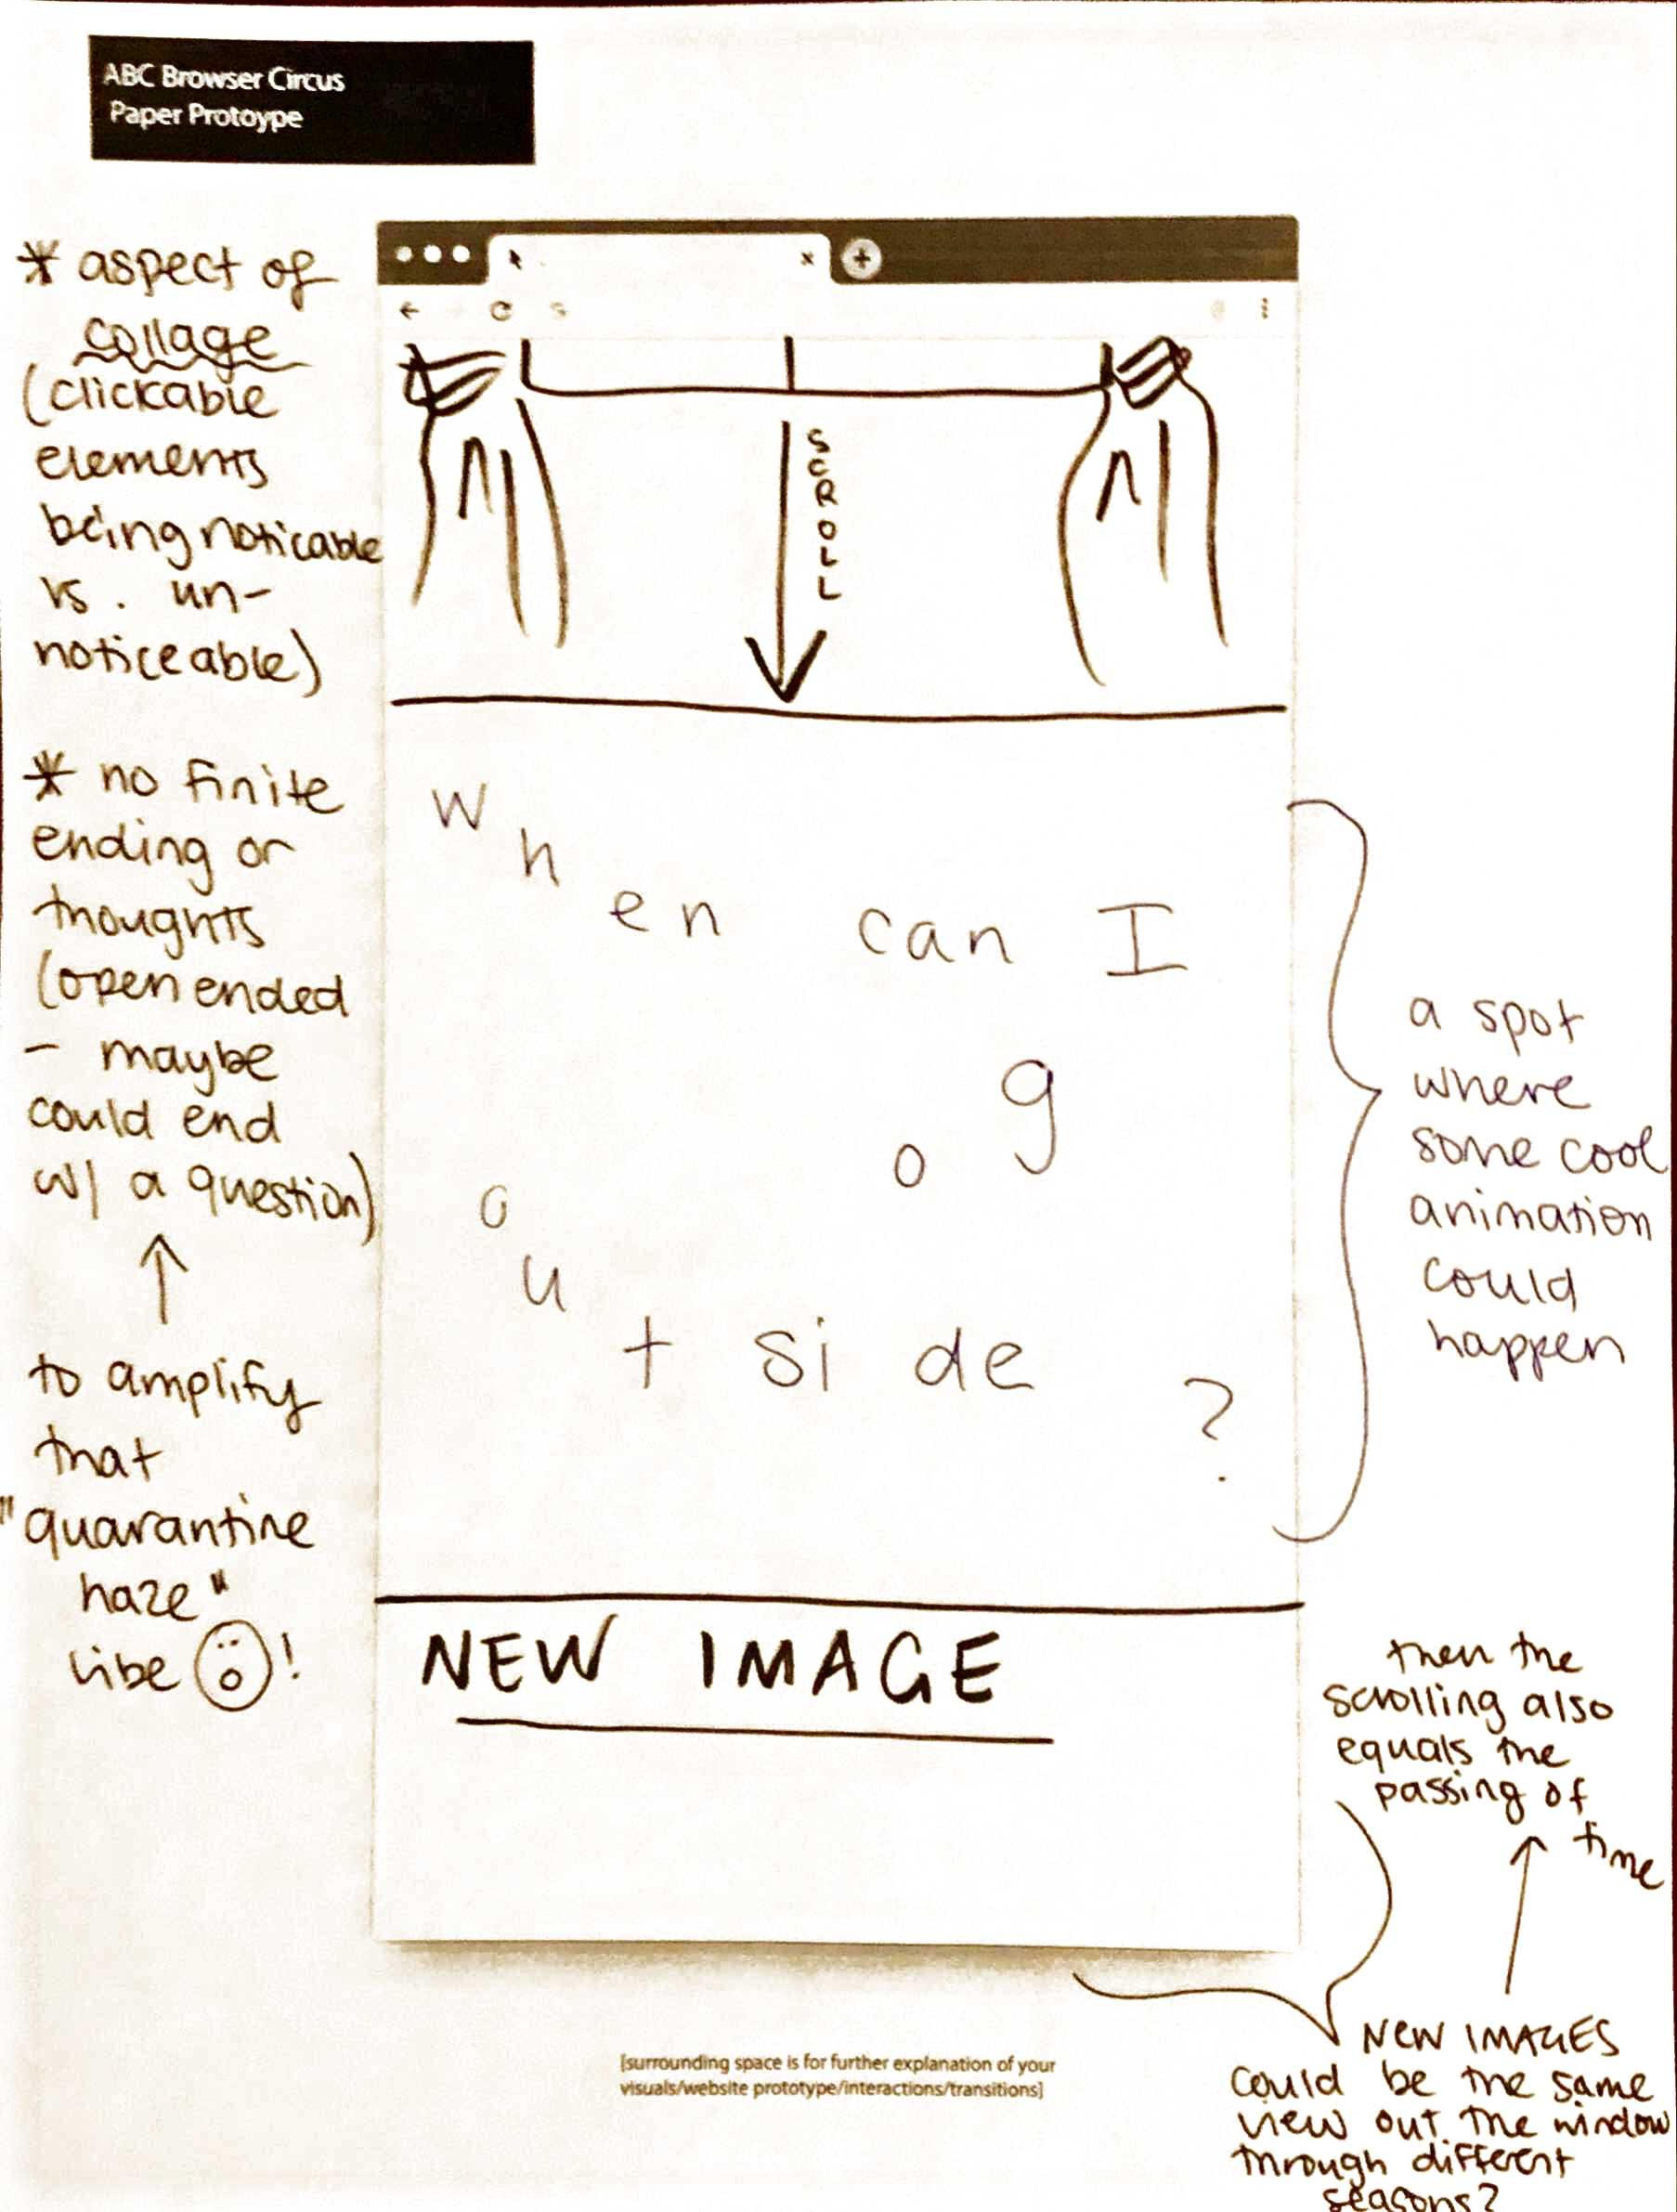 ABC Browser Circus
Paper Protoype
* aspect of
collage
(clickable
elements
being noticable
vs. un-
noticeable)
* no finite
ending or
thoughts
(open ended
- maybe
could end
w/ a question)
to amplify
that
"quarantine
haze"
vibe !
SCROLL
When can I
go
outside?
a spot
where
some cool
animation
could
happen
NEW IMAGE
then the
scrolling also
equals the
passing of
time
NEW IMAGES
could be the same
view out the window
through different
seasons?
[surrounding space is for further explanation of your
visuals/website prototype/interactions/transitions]